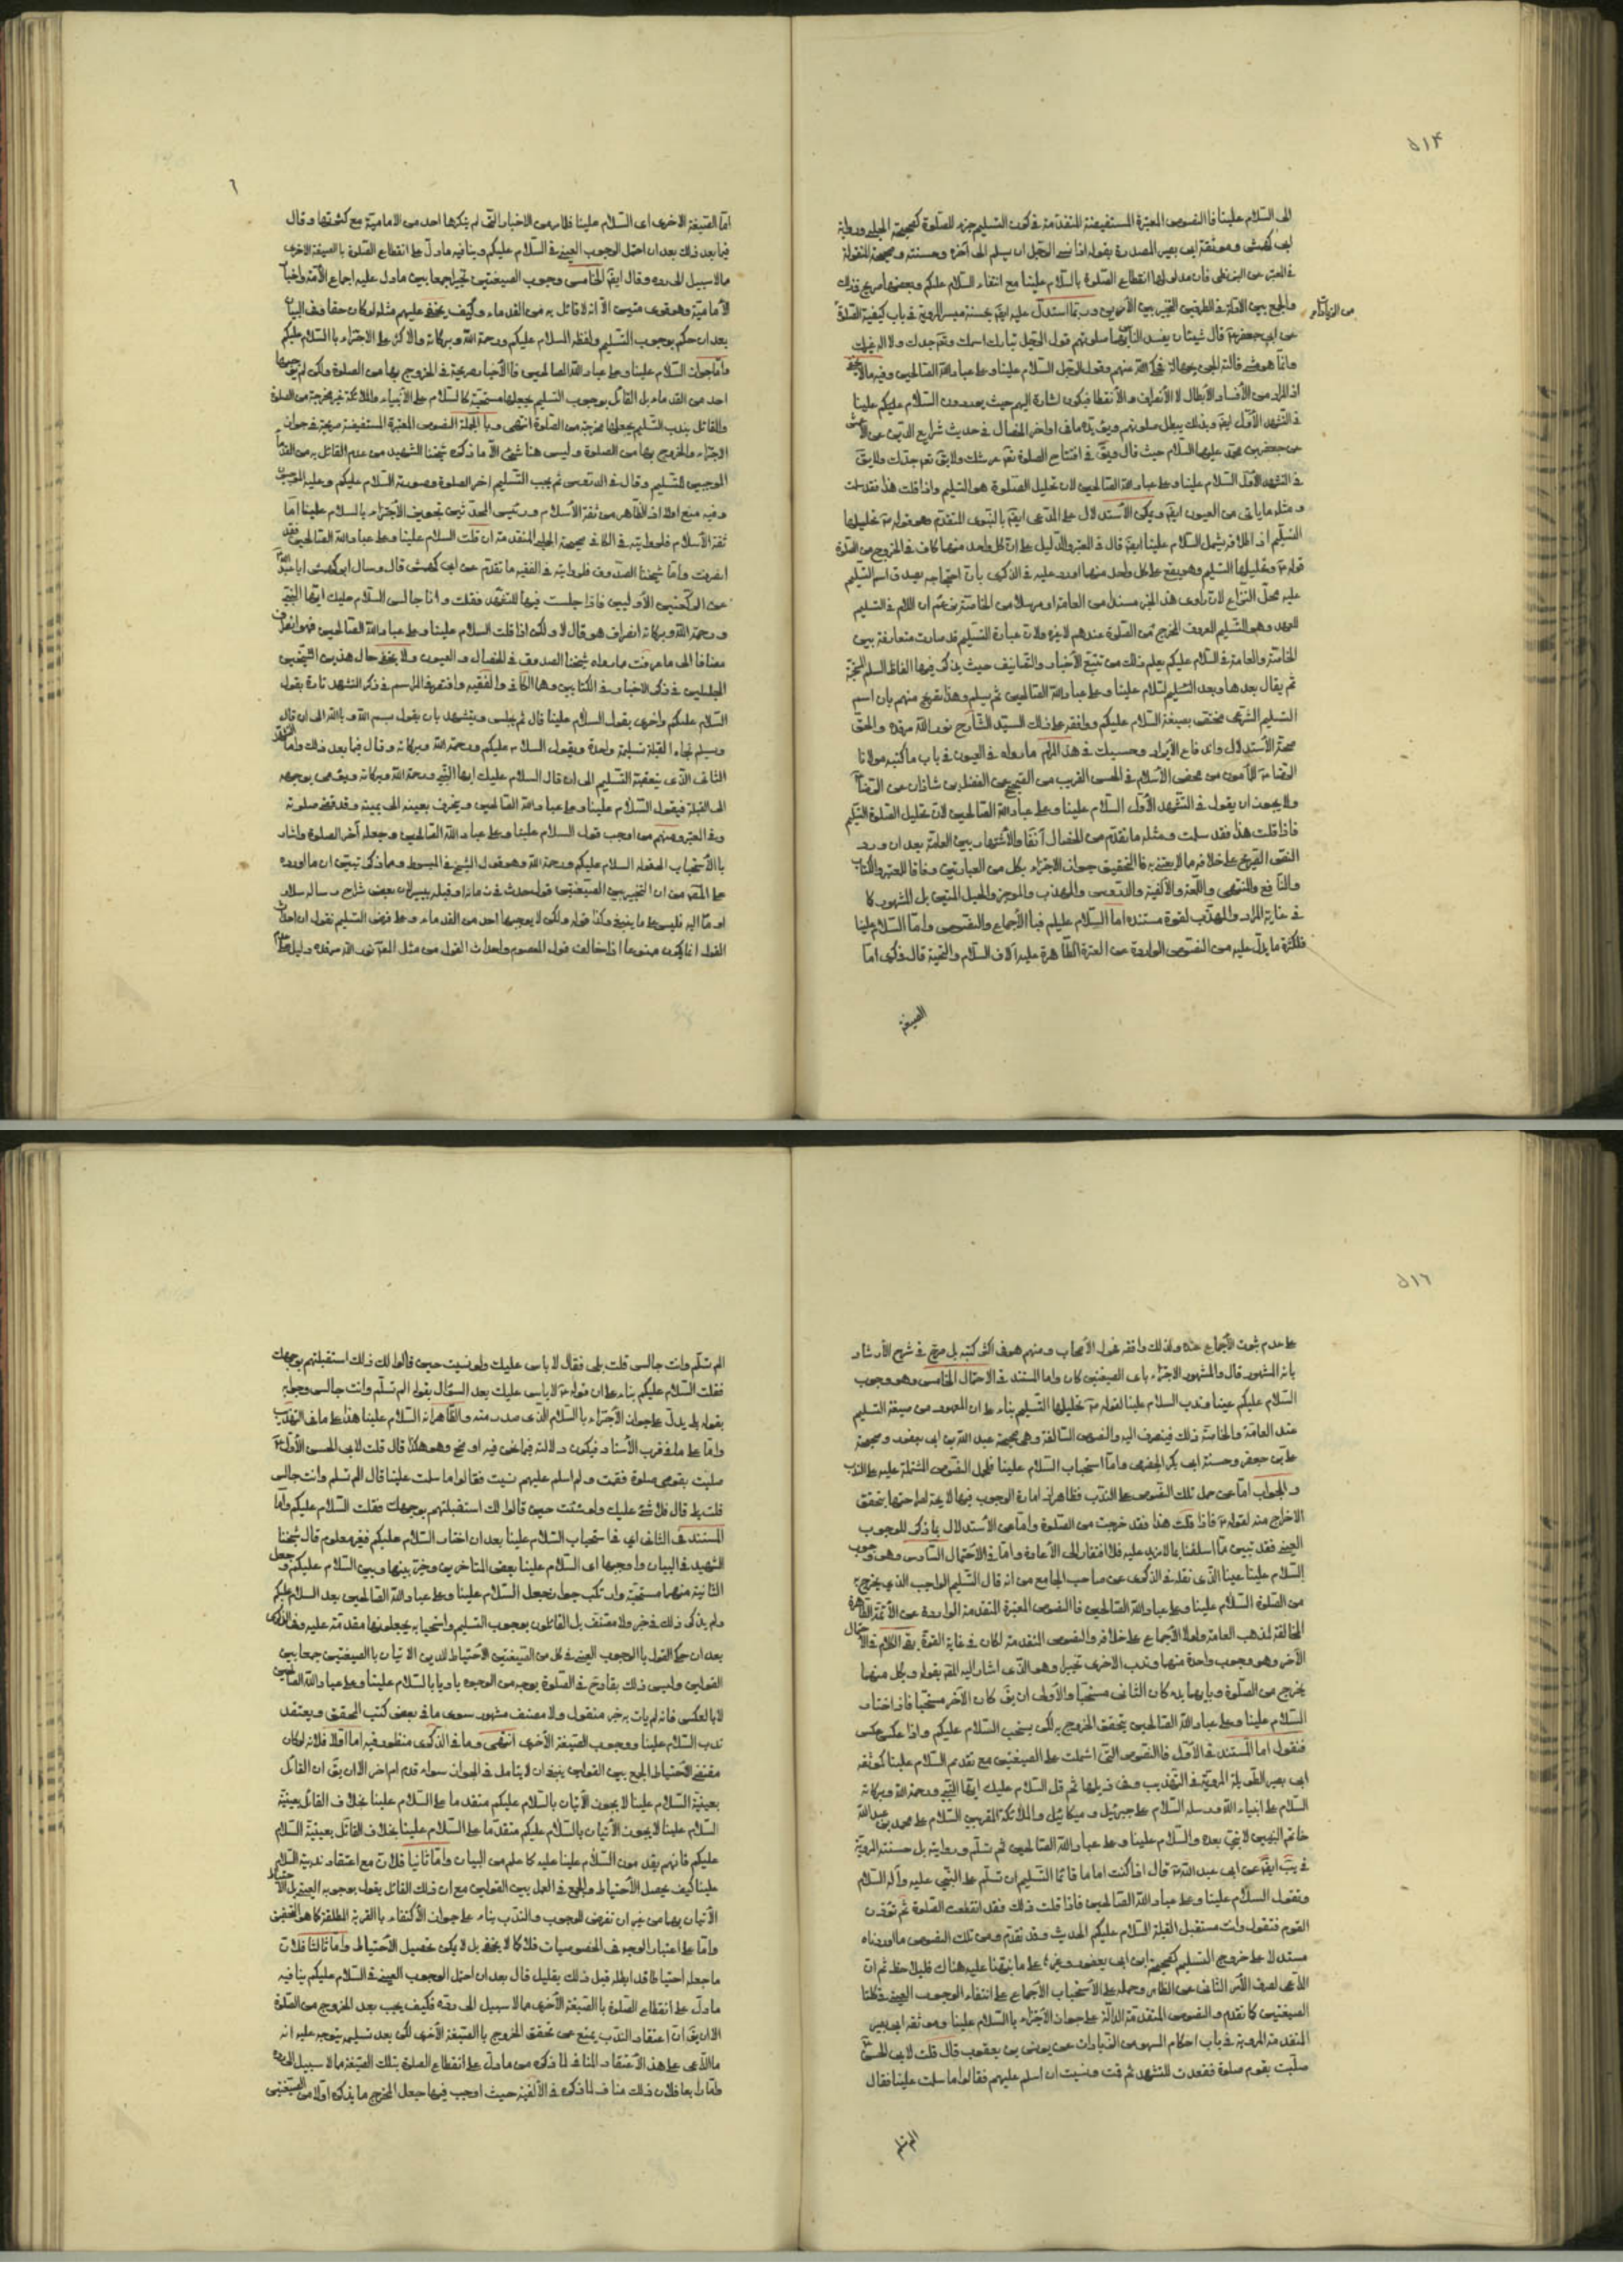 ٥١٤
الى السلام علينا فالنصوص المعتبرة المستفيضة المتقدمة في كون التسليم جزء للصلوة كصحيحة الحلبي ورواية
ابى كهمش وموثقة ابى بصير المصدرة بقوله اذا نسى الرجل ان يسلم الى آخره وحسنته وصحيحة المنقولة
في المعتبر عن البزنطى فان مدلولها انقطاع الصلوة بالسلام علينا مع انتفاء السلام عليكم وبعضها صريح في ذلك
والجمع بين الادلة في الطرفين التخيير بين الأمرين وربما استدل عليه ايضا بحسنة ميسر المروية في باب كيفية الصلوة
من الزيادات
عن ابى جعفر ع قال شيئان يفسد الناس بهما صلوتهم قول الرجل تبارك اسمك وتعالى جدك ولا اله غيرك
وانما هو شئ قالته الجن بجهالة فحكى الله عنهم وقول الرجل السلام علينا وعلى عباد الله الصالحين وفيه ما لا يخفى
اذ المراد من الأفساد الأبطال لا الأنصراف والأنقطاع فيكون اشارة اليهم حيث يوردون السلام عليكم علينا
في التشهد الأول ايضا وبذلك يبطل صلوتهم ويؤيده ما في اواخر الخصال في حديث شرايع الدين عن الأعمش
عن جعفر بن محمد عليهما السلام حيث قال ويق في افتتاح الصلوة تعالى عرشك ولا يق تعالى جدك ولا يق
في التشهد الأول السلام علينا وعلى عباد الله الصالحين لان تحليل الصلوة هو التسليم واذا قلت هذا فقد سلمت
ومثله ما يأتى من العيون ايضا ويمكن الأستدلال على المدعى ايضا بالنبوى المتقدم وهو قوله ص تحليلها
التسليم اذ اطلاقه يشمل السلام علينا ايضا قال في المعتبر والدليل على ان كل واحد منهما كاف في الخروج من الصلوة
قوله ص وتحليلها التسليم وهو يقع على كل واحد منهما اورد عليه في الذكرى بان احتجاجه بصدق اسم التسليم
عليه محل النزاع لان راوى هذا الخبر مسندا من العامة او مرسلا من الخاصة يزعم ان اللام في التسليم
للعهد وهو التسليم المعروف المخرج من الصلوة عندهم لا غيره ولان عبارة التسليم قد صارت متعارفة بين
الخاصة والعامة في السلام عليكم يعلم ذلك من تتبع الأخبار والتصانيف حيث يذكر فيها الفاظ السلم
ثم يقال بعدها وبعد التسليم السلام علينا وعلى عباد الله الصالحين ثم يسلم وهذا تصريح منهم بان اسم
التسليم الشرعى مختص بصيغة السلام عليكم ووافقه على ذلك السيد الشارح نور الله مرقده والحق
صحة الأستدلال واندفاع الأيراد وحسبك في هذا المرام ما رواه في العيون في باب ما كتبه مولانا
الرضا ع للمأمون من محض الأسلام في الحسن القريب من الصحيح عن الفضل بن شاذان عن الرضا ع
ولا يجوز ان يقول في التشهد الأول السلام علينا وعلى عباد الله الصالحين لان تحليل الصلوة التسليم
فاذا قلت هذا فقد سلمت ومثله ما تقدم من الخصال آنفا والأشتهار بين العامة بعد ان ورد
النص الصريح على خلافه مما لا يعتنى به فالتحقيق جواز الاجتزاء بكل من العبارتين وفاقا للمعتبر والكتاب
والنافع والمنتهى واللمعة والألفية والدروس والمهذب والموجز والحبل المتين بل المشهور كما
في غاية المراد والمهذب لقوة مستنده اما السلام عليكم فبالأجماع والنصوص واما السلام علينا
فلكثرة ما يدل عليه من النصوص الواردة من العترة الطاهرة عليهم آلاف السلام والتحية قال في كرى اما
الصيغة
٦
اما الصيغة الاخرى اى السلام علينا فلامر من الاخبار التى لم ينكرها احد من الامامية مع كثرتها وقال
فيما بعد ذلك بعد ان احتمل الوجوب العينى في السلام عليكم وينافيه ما دل على انقطاع الصلوة بالصيغة الاخرى
مما لا سبيل الى رده وقال ايضا الخامس وجوب الصيغتين تخييرا جمعا بين ما دل عليه اجماع الأمة واخبار
الأمامية وهو قوى متين الا انه لا قائل به من القدماء وكيف يخفى عليهم مثله لو كان حقا وفي البيان
بعد ان حكم بوجوب التسليم ولفظه السلام عليكم ورحمة الله وبركاته والاكثر على الاجتزاء بالسلام عليكم
واما جواز السلام علينا وعلى عباد الله الصالحين فالأخبار صريحة في الخروج بها من الصلوة ولكن لم يوجبها
احد من القدماء بل القائل بوجوب التسليم يجعلها مستحبة كالسلام على الأنبياء والملائكة غير مخرجة من الصلوة
والقائل بندب التسليم يجعلها مخرجة من الصلوة انتهى وبالجملة النصوص المعتبرة المستفيضة صريحة في جواز
الاجتزاء والخروج بها من الصلوة وليس هنا شئ الا ما ذكره شيخنا الشهيد من عدم القائل به من القدماء
الموجبين للتسليم وقال في الدروس ثم يجب التسليم اخر الصلوة وصورته السلام عليكم وعليه الموجبون
وفيه منع اولا اذ الظاهر من ثقة الأسلام ورئيس المحدثين تجويز الأجتزاء بالسلام علينا اما
ثقة الأسلام فلروايته في الكافى صحيحة الحلبى المتقدمة ان قلت السلام علينا وعلى عباد الله الصالحين فقد
انصرفت واما شيخنا الصدوق فلروايته في الفقيه ما تقدم عن ابى كهمش قال وسال ابو كهمش ابا عبد الله ع
عن الركعتين الأوليين فاذا جلست فيهما للتشهد فقلت وانا جالس السلام عليك ايها النبى
ورحمة الله وبركاته انصراف هو قال لا ولكن اذا قلت السلام علينا وعلى عباد الله الصالحين فهو انصراف
مضافا الى ما عرفت ما رواه شيخنا الصدوق في الخصال والعيون ولا يخفى حال هذين الشيخين
الجليلين في ذكر الاخبار في الكتابين وهما الكافى والفقيه واقتصر في المراسم في ذكر التشهد تارة بقول
السلام عليكم واخرى بقول السلام علينا قال ثم يجلس ويتشهد بان يقول بسم الله وبالله الى ان قال
ويسلم تجاه القبلة تسليمة واحدة ويقول السلام عليكم ورحمة الله وبركاته وقال فيما بعد ذلك واما التشهد
الثانى الذى يتعقبه التسليم الى ان قال السلام عليك ايها النبى ورحمة الله وبركاته ويؤمى بوجهه
الى القبلة فيقول السلام علينا وعلى عباد الله الصالحين وينحرف بعينه الى يمينه وقد قضى صلوته
وفي المعتبر ومنهم من اوجب قول السلام علينا وعلى عباد الله الصالحين وجعله آخر الصلوة واشار
بالأستحباب الى قوله السلام عليكم ورحمة الله وهو قول الشيخ في المبسوط ومما ذكر تبين ان ما اورده
على المحقق من ان التخيير بين الصيغتين قول حدث في زمانه او قبله بيسير لان بعض شراح رسالة سلار
اومأ اليه فليس على ما ينبغى وكذا قوله ولكن لا يوجبها احد من القدماء وعلى فرض التسليم نقول ان احداث
القول انما يكون ممنوعا اذا خالف قول المعصوم واحداث القول من مثل المحقق نور الله مرقده دليل على
٥١٦
على عدم ثبوت الأجماع عنده ولذلك وافقه فحول الأصحاب ومنهم هو في اكثر كتبه بل صرح في شرح الأرشاد
بانه المشهور قال والمشهور الاجتزاء باى الصيغتين كان واما المستند في الاحتمال الخامس وهو وجوب
السلام عليكم عينا وندب السلام علينا لقوله ص تحليلها التسليم بناء على ان المعهود من صيغة التسليم
عند العامة والخاصة ذلك فينصرف اليه والنصوص السالفة وهى صحيحة عبد الله بن ابى يعفور وصحيحة
على بن جعفر وحسنة ابى بكر الحضرمى واما استحباب السلام علينا فلحمل النصوص المشتملة عليه على الندب
والجواب اما عن حمل تلك النصوص على الندب فظاهر اذ امارة الوجوب فيها لا يحة لصراحتها بتحقق
الاخراج منه لقوله ع فاذا قلت هذا فقد خرجت من الصلوة واما عن الأستدلال بما ذكر للوجوب
العينى فقد تبين مما اسلفنا بما لا مزيد عليه فلا افتقار الى الأعادة واما في الأحتمال السادس وهو وجوب
السلام علينا عينا الذى نقله في الذكرى عن صاحب الجامع من انه قال التسليم الواجب الذى يخرج به
من الصلوة السلام علينا وعلى عباد الله الصالحين فالنصوص المعتبرة المتقدمة الواردة عن الأئمة الطاهرة
المخالفة لمذهب العامة ولولا الأجماع على خلافه والنصوص المتقدمة لكان في غاية القوة بقى الكلام في الأحتمال
الآخر وهو وجوب واحدة منهما وندب الاخرى تخييرا وهو الذى اشار اليه المص بقوله وبكل منهما
يخرج من الصلوة وبايهما بدء كان الثانى مستحبا والأولى ان يق كان الآخر مستحبا فاذا اختار
السلام علينا وعلى عباد الله الصالحين يتحقق الخروج به لكن يستحب السلام عليكم واذا عكس عكس
فنقول اما المستند في الأول فالنصوص التى اشتملت على الصيغتين مع تقديم السلام علينا كموثقة
ابى بصير الطويلة المروية في التهذيب وفي ذيلها ثم قل السلام عليك ايها النبى ورحمة الله وبركاته
السلام على انبياء الله ورسله السلام على جبرئيل وميكائيل والملائكة المقربين السلام على محمد بن عبد الله
خاتم النبيين لا نبى بعده والسلام علينا وعلى عباد الله الصالحين ثم تسلم وروايته بل حسنته المروية
في يب ايضا عن ابى عبد الله ع قال اذا كنت اماما فانما التسليم ان تسلم على النبى عليه وآله السلام
وتقول السلام علينا وعلى عباد الله الصالحين فاذا قلت ذلك فقد انقطعت الصلوة ثم تؤذن
القوم فتقول وانت مستقبل القبلة السلام عليكم الحديث وقد تقدم ومن تلك النصوص ما اوردناه
مستدلا على خروج التسليم كصحيحة ابن ابى يعفور وغيره على ما نبهنا عليه هناك فليلاحظ ثم ان
الداعى لصرف الأمر الثانى عن الظاهر وحمله على الأستحباب الأجماع على انتفاء الوجوب العينى في كلتا
الصيغتين كما تقدم والنصوص المتقدمة الدالة على جواز الأجتزاء بالسلام علينا وموثقة ابى بصير
المتقدمة المروية في باب احكام السهو من الزيادات عن يونس بن يعقوب قال قلت لابى الحسن ع
صليت بقوم صلوة فقعدت للتشهد ثم قمت ونسيت ان اسلم عليهم فقالوا ما سلمت علينا فقال
الم تسلم
الم تسلم وانت جالس قلت بلى فقال لا باس عليك ولو نسيت حين قالوا لك ذلك استقبلتهم بوجهك
فقلت السلام عليكم بناء على ان قوله ع لا باس عليك بعد السؤال بقوله الم تسلم وانت جالس وجوابه
بقوله بلى يدل على جواز الأجتزاء بالسلام الذى صدر منه والظاهر انه السلام علينا هذا على ما في التهذيب
واما على ما في قرب الأسناد فيكون دلالته فيما نحن فيه اوضح وهو هكذا قال قلت لابى الحسن الأول ع
صليت بقومى صلوة فقمت ولم اسلم عليهم نسيت فقالوا ما سلمت علينا قال الم تسلم وانت جالس
قلت بلى قال فلا شئ عليك ولو شئت حين قالوا لك استقبلتهم بوجهك فقلت السلام عليكم واما
المستند في الثانى اى في استحباب السلام علينا بعد ان اختار السلام عليكم فغير معلوم قال شيخنا
الشهيد في البيان واوجبها اى السلام علينا بعض المتاخرين وخير بينها وبين السلام عليكم وجعل
الثانية منهما مستحبة وارتكب جواز تجعل السلام علينا وعلى عباد الله الصالحين بعد السلام عليكم
ولم يذكر ذلك في خبر ولا مصنف بل القائلون بوجوب التسليم واستحبابه يجعلونها مقدمة عليه وفي الذكرى
بعد ان حكى القول بالوجوب العينى في كل من الصيغتين الأحتياط للدين الاتيان بالصيغتين جمعا بين
القولين وليس ذلك بقادح في الصلوة بوجه من الوجوه باديا بالسلام علينا وعلى عباد الله الصالحين
لا بالعكس فانه لم يات به خبر منقول ولا مصنف مشهور سوى ما في بعض كتب المحقق ويعتقد
ندب السلام علينا ووجوب الصيغة الأخرى انتهى وما في الذكرى منظور فيه اما اولا فلانه لو كان
مقتضى الأحتياط الجمع بين القولين ينبغى ان لا يتامل في الجواز سواء قدم ام اخر الا ان يق ان القائل
بعينية السلام علينا لا يجوز الأتيان بالسلام عليكم متقدما على السلام علينا بخلاف القائل بعينية
السلام علينا لا يجوز الأتيان بالسلام عليكم متقدما على السلام علينا بخلاف القائل بعينية السلام
عليكم فانهم يقدمون السلام علينا عليه كما علم من البيان واما ثانيا فلان مع اعتقاد ندبية السلام
علينا كيف يحصل الأحتياط والجمع في العمل بين القولين مع ان ذلك القائل يقول بوجوبه العينى بل الأحتياط
الأتيان بهما من غير ان تعرض للوجوب والندب بناء على جواز الأكتفاء بالقربة المطلقة كما هو التحقيق
واما على اعتبار الوجه في الخصوصيات فلا كما لا يخفى بل لا يمكن تحصيل الأحتياط واما ثالثا فلان
ما جعله احتياطا قد ابطله قبل ذلك بقليل قال بعد ان احتمل الوجوب العينى في السلام عليكم ينافيه
ما دل على انقطاع الصلوة بالصيغة الأخرى مما لا سبيل الى رده فكيف يجب بعد الخروج من الصلوة
الا ان يق ان اعتقاد الندب يمنع عن تحقق الخروج بالصيغة الأخرى لكن بعد تسليمه يتوجه عليه انه
ما الداعى على هذا الأعتقاد المنافى لما ذكره من ما دل على انقطاع الصلوة بتلك الصيغة مما لا سبيل الى رده
واما رابعا فلان ذلك مناف لما ذكره في الألفية حيث اوجب فيها جعل المخرج ما يذكره اولا من الصيغتين